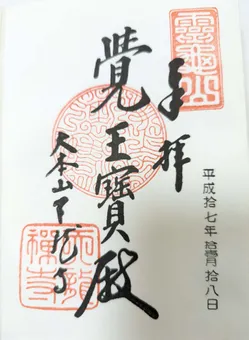 奉拝
平成拾七年拾壱月拾八日
覺王寶殿
大本山天龍寺
靈龜山
天龍禪寺